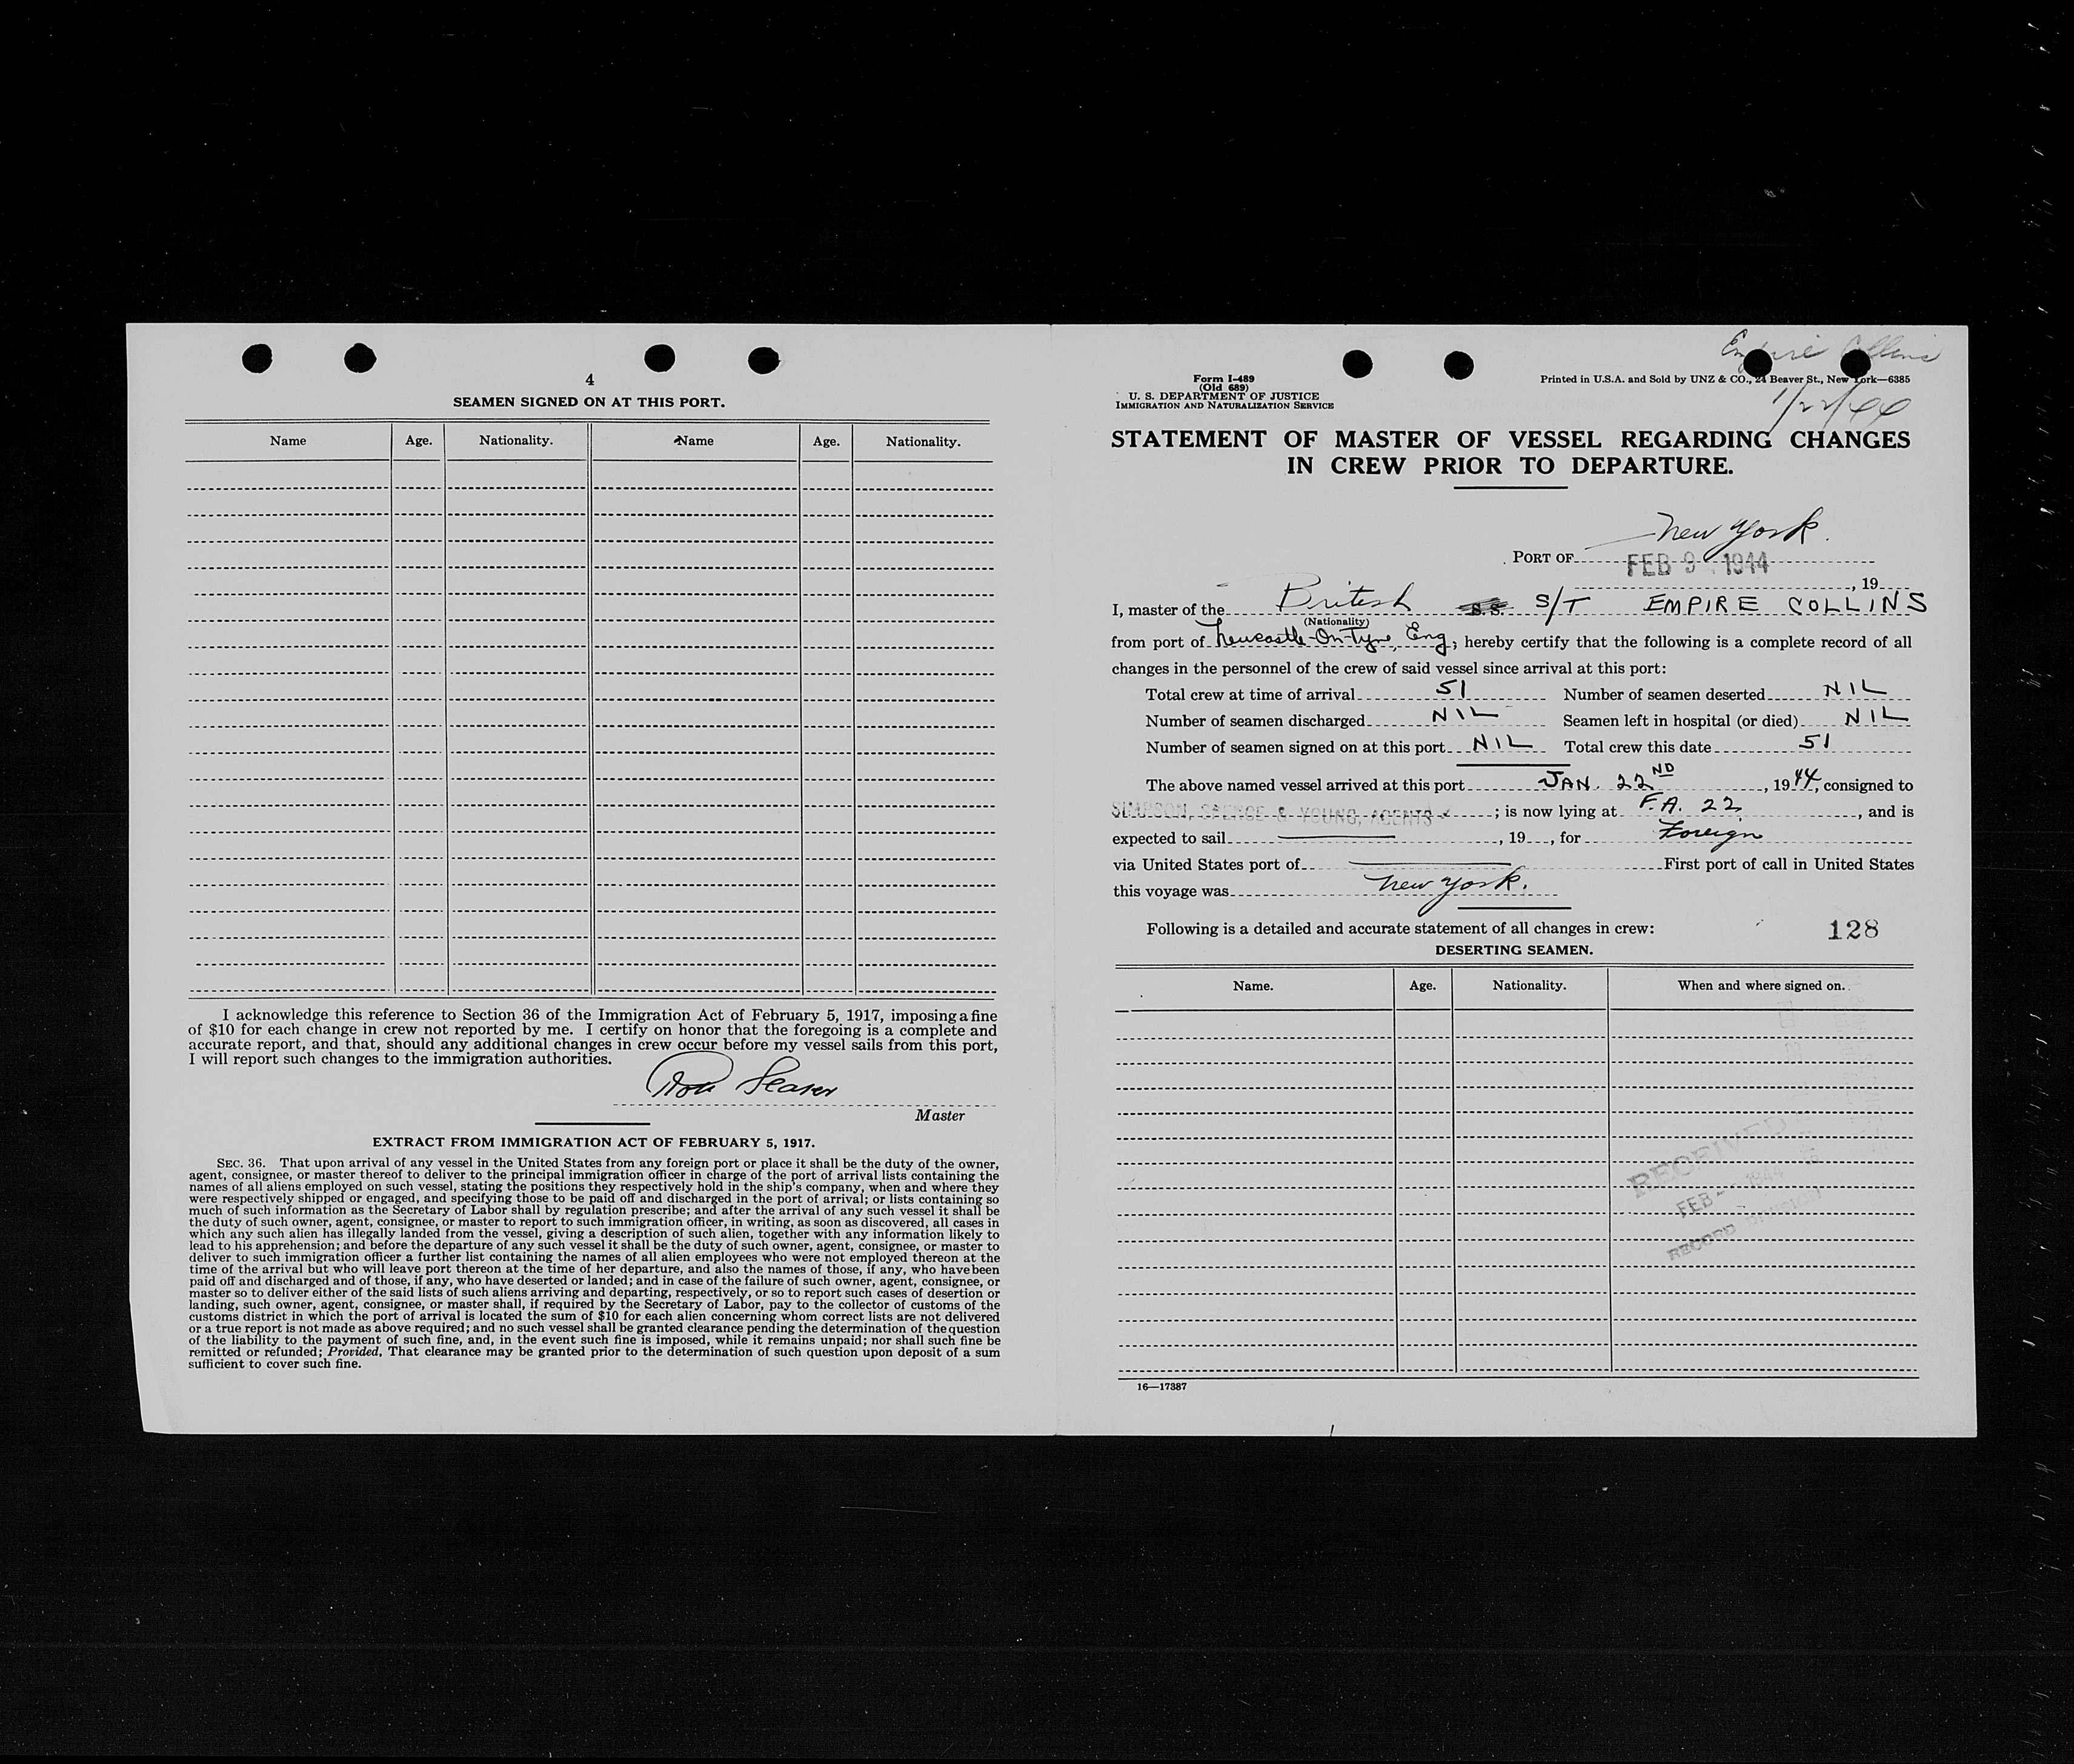 4
SEAMEN SIGNED ON AT THIS PORT.
Name Age. Nationality. Name Age. Nationality.
I acknowledge this reference to Section 36 of the Immigration Act of February 5, 1917, imposing a fine
of $10 for each change in crew not reported by me. I certify on honor that the foregoing is a complete and
accurate report, and that, should any additional changes in crew occur before my vessel sails from this port,
I will report such changes to the immigration authorities.
Master
EXTRACT FROM IMMIGRATION ACT OF FEBRUARY 5, 1917.
SEC. 36. That upon arrival of any vessel in the United States from any foreign port or place it shall be the duty of the owner,
agent, consignee, or master thereof to deliver to the principal immigration officer in charge of the port of arrival lists containing the
names of all aliens employed on such vessel, stating the positions they respectively hold in the ship's company, when and where they
were respectively shipped or engaged, and specifying those to be paid off and discharged in the port of arrival; or lists containing so
much of such information as the Secretary of Labor shall by regulation prescribe; and after the arrival of any such vessel it shall be
the duty of such owner, agent, consignee, or master to report to such immigration officer, in writing, as soon as discovered, all cases in
which any such alien has illegally landed from the vessel, giving a description of such alien, together with any information likely to
lead to his apprehension; and before the departure of any such vessel it shall be the duty of such owner, agent, consignee, or master to
deliver to such immigration officer a further list containing the names of all alien employees who were not employed thereon at the
time of the arrival but who will leave port thereon at the time of her departure, and also the names of those, if any, who have been
paid off and discharged and of those, if any, who have deserted or landed; and in case of the failure of such owner, agent, consignee, or
master so to deliver either of the said lists of such aliens arriving and departing, respectively, or so to report such cases of desertion or
landing, such owner, agent, consignee, or master shall, if required by the Secretary of Labor, pay to the collector of customs of the
customs district in which the port of arrival is located the sum of $10 for each alien concerning whom correct lists are not delivered
or a true report is not made as above required; and no such vessel shall be granted clearance pending the determination of the question
of the liability to the payment of such fine, and, in the event such fine is imposed, while it remains unpaid; nor shall such fine be
remitted or refunded; Provided, That clearance may be granted prior to the determination of such question upon deposit of a sum
sufficient to cover such fine.
Empire Collins
Form I-489
(Old 689)
U. S. DEPARTMENT OF JUSTICE
IMMIGRATION AND NATURALIZATION SERVICE
Printed in U.S.A. and Sold by UNZ & CO., 24 Beaver St., New York—6385
1/22/44
STATEMENT OF MASTER OF VESSEL REGARDING CHANGES
IN CREW PRIOR TO DEPARTURE.
PORT OF New York.
FEB 9 1944
, 19
I, master of the British S.S. S/T EMPIRE COLLINS
(Nationality)
from port of Newcastle-On-Tyne, Eng, hereby certify that the following is a complete record of all
changes in the personnel of the crew of said vessel since arrival at this port:
Total crew at time of arrival 51 Number of seamen deserted NIL
Number of seamen discharged NIL Seamen left in hospital (or died) NIL
Number of seamen signed on at this port NIL Total crew this date 51
The above named vessel arrived at this port JAN. 22ND, 1944, consigned to
SIMPSON, SPENCE & YOUNG, AGENTS; is now lying at F.A. 22, and is
expected to sail , 19 , for Foreign
via United States port of First port of call in United States
this voyage was New York.
Following is a detailed and accurate statement of all changes in crew:
128
DESERTING SEAMEN.
Name. Age. Nationality. When and where signed on.
RECEIVED
FEB 1944
RECORD DIVISION
16—17387